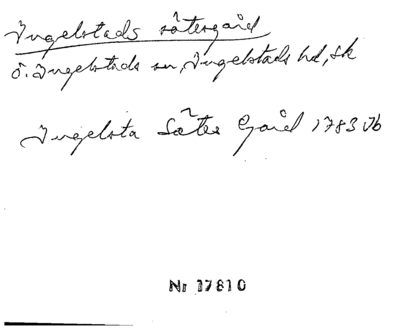 Ingelstads sätesgård
Ö. Ingelstads sn, Ingelstads hd, Sk
Ingelsta Säter Gård 1783 Jb
Nr 17810